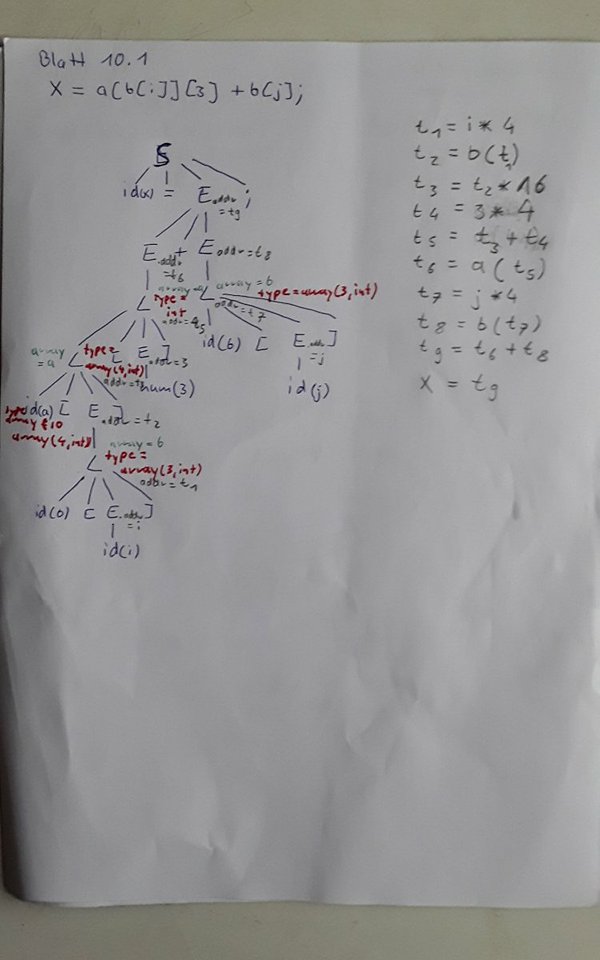 Blatt 10.1
X = a[b[i]][3] + b[j];
S
id(x) = E.addr = t9 ;
E.addr = t6 + E addr = t8
array = a L type = int addr = t5
array = b L type = array(3, int) addr = t7
array = a L type = array(4, int) addr = t3 [ E.addr = 3 ]
id(b) [ E.addr = j ]
num(3)
id(j)
id(a) [ E.addr = t2 ]
array(4, int)
array = b
L type = array(3, int)
addr = t1
[ E.addr = i ]
id(i)
t1 = i * 4
t2 = b(t1)
t3 = t2 * 16
t4 = 3 * 4
t5 = t3 + t4
t6 = a(t5)
t7 = j * 4
t8 = b(t7)
t9 = t6 + t8
X = t9